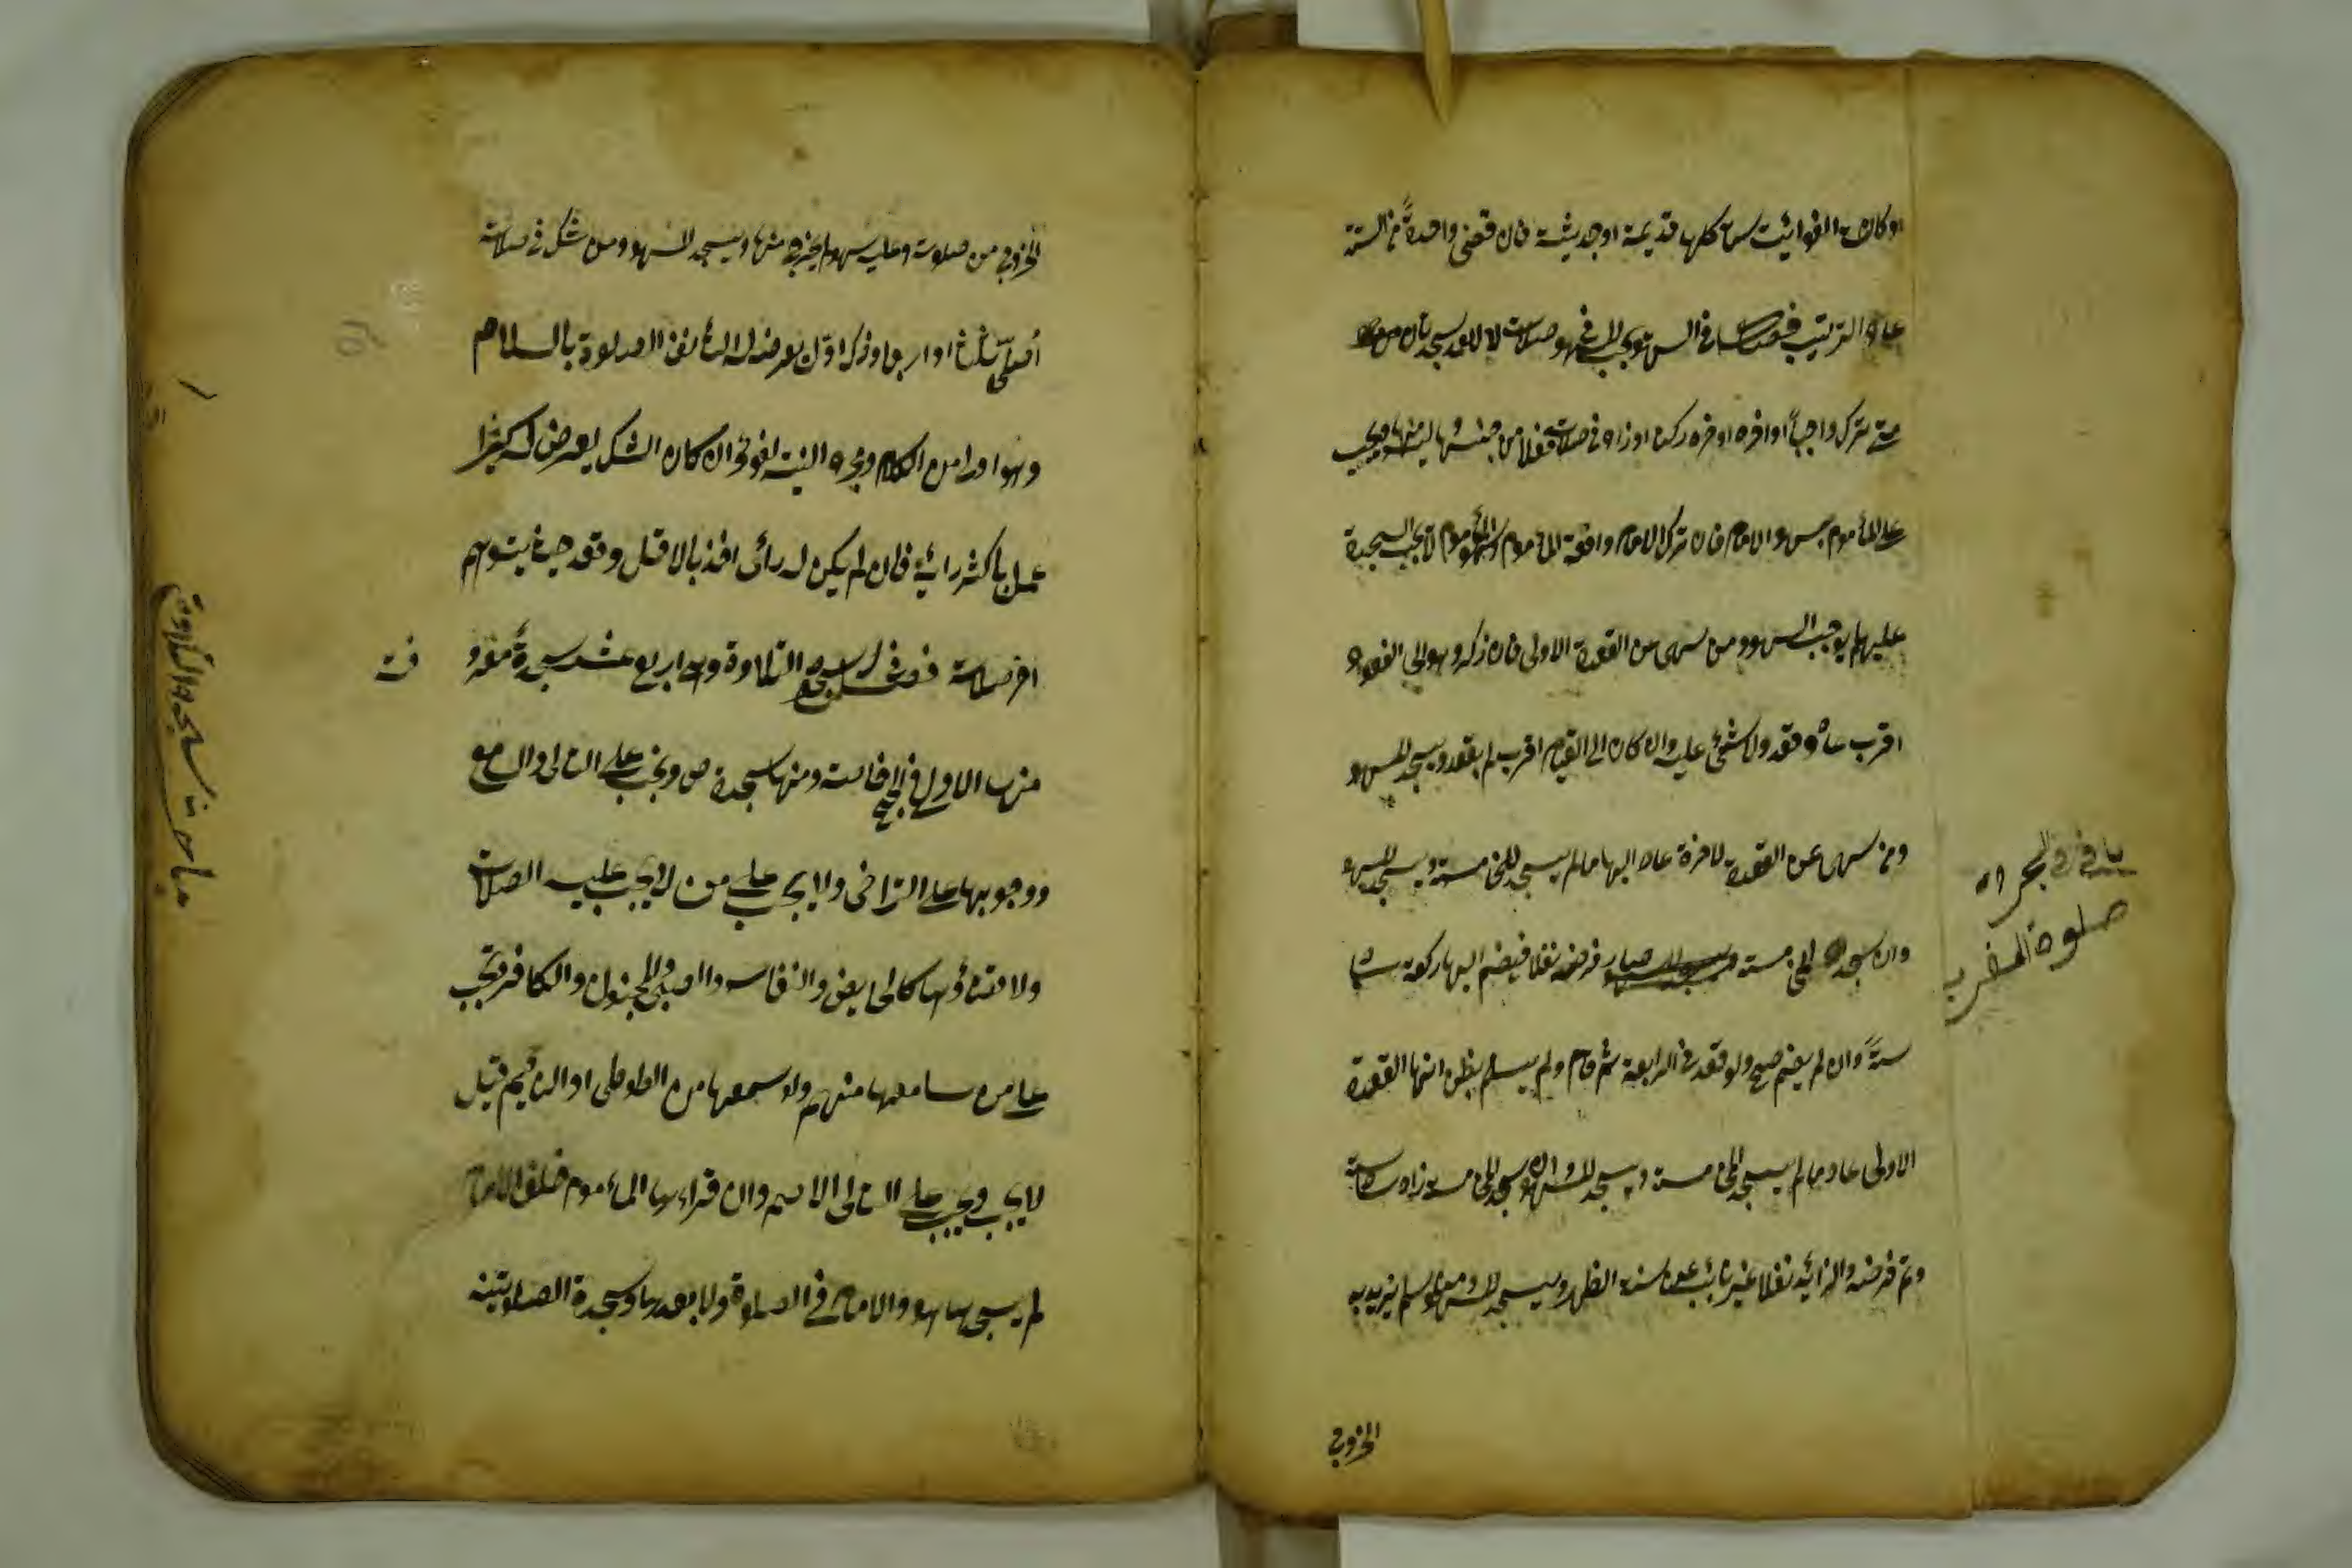 او كانت الفوائت ستا كلها قديمة او حديثة فان قضى واحدةً من الستة
عاد الترتيب فصل في السهو يجب في سهو صلاته لا لعمد سجدتان
متى ترك واجباً او اخره او اخره ركنا او زاد في صلاته فعلا من جنسها ليس منها ويجب
على المأموم بسهو الامام فان ترك الامام وافقه المأموم وسهو المأموم لا يجب السجدة
عليهما يوجب السهو ومن سهى عن القعدة الاولى فان ذكر وهو الى القعود
اقرب عاد وقعد ولا شئ عليه وان كان الى القيام اقرب لم يقعد ويسجد للسهو
ومن سهى عن القعدة لاخرة عاد اليها مالم يسجد للخامسة ويسجد للسهو
وان سجد الخامسة صار فرضه نفلا فيضم اليها ركعة
ستةً وان لم يضم صح ولو قعد في الرابعة ثم قام ولم يسلم يظن انها القعدة
الاولى عاد مالم يسجد للخامسة ويسجد للسهو وان سجد للخامسة زاد سادسة
وتم فرضه والزائد نفلا غير نائب عن سنة الظهر ويسجد للسهو ومن سلم يريد به
الخروج
صلوة المغرب
الخروج من صلوته وعليه سهو لم يخرج منها ويسجد للسهو ومن شك في صلاته
أصلى ثلثا او اربعا وذكر اول يعرض له استأنف الصلوة بالسلام
وهو اولى من الكلام ومجرد النية لغو وان كان الشك يعرض له كثيرا
عمل باكثر رائه فان لم يكن له رائى اخذ بالاقل وقعد حيث يتوهم
اخر صلاته فصل في سجود التلاوة وهي اربع عشر سجدةً
منها الاولى في الحج ومنها سجدة ص ويجب على التالى والسامع
ووجوبها على التراخى ولا يجب على من لا يجب عليه الصلات
ولا قضاؤها كالحايض والنفاس والصبى والمجنون والكافر وتجب
على من سامعها منهم ولو سمعها من الطوطى او النائم قيل
لا يجب ويجب على التالى الاصم وان قراءها المأموم خلف الامام
لم يسجدها هو والامام في الصلوة ولا بعدها وسجدة الصلوتية
سجدة التلاوة